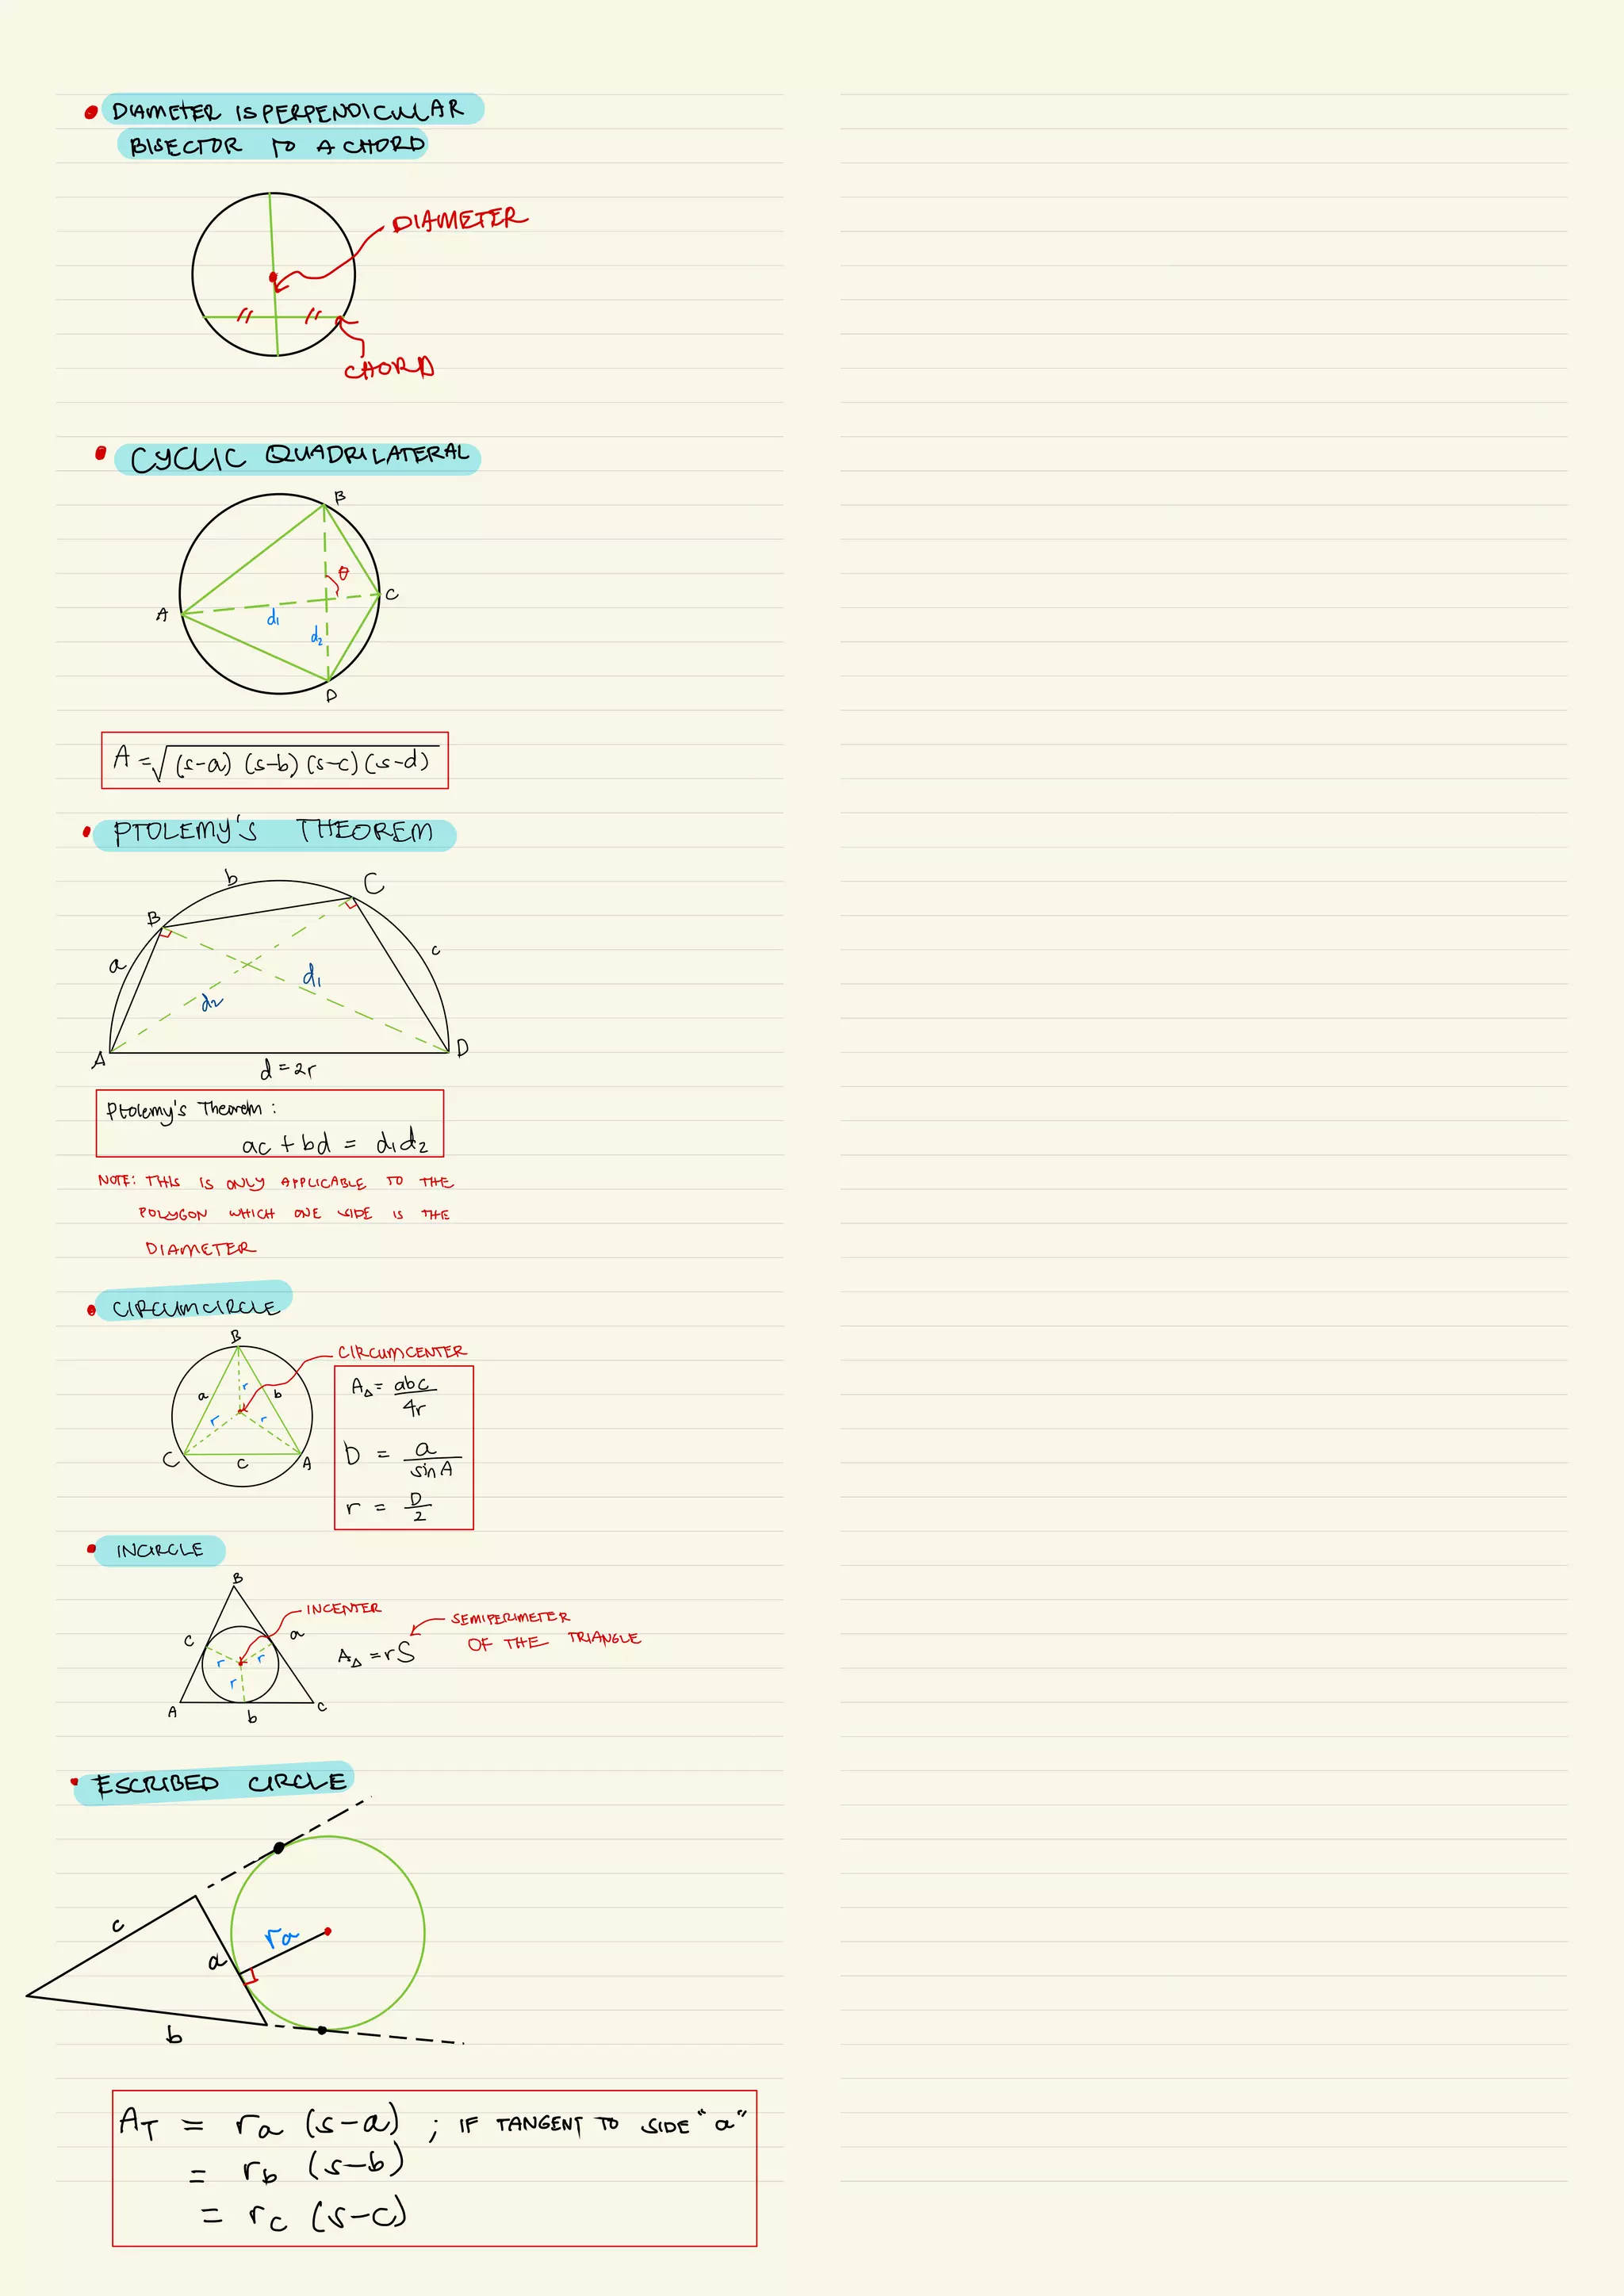 DIAMETER IS PERPENDICULAR
BISECTOR TO A CHORD
DIAMETER
CHORD
CYCLIC QUADRILATERAL
B
θ
A
C
d₁
d₂
D
A = √(s-a) (s-b) (s-c) (s-d)
PTOLEMY'S THEOREM
b
C
B
a
c
d₁
d₂
A
D
d = 2r
Ptolemy's Theorem :
ac + bd = d₁d₂
NOTE: THIS IS ONLY APPLICABLE TO THE
POLYGON WHICH ONE SIDE IS THE
DIAMETER
CIRCUMCIRCLE
B
CIRCUMCENTER
a
r
b
r
r
C
c
A
A△ = abc/4r
D = a/sin A
r = D/2
INCIRCLE
B
INCENTER
SEMIPERIMETER
OF THE TRIANGLE
c
a
r
r
r
A△ = rS
A
b
C
ESCRIBED CIRCLE
c
ra
a
b
AT = ra (s-a) ; IF TANGENT TO SIDE "a"
= rb (s-b)
= rc (s-c)